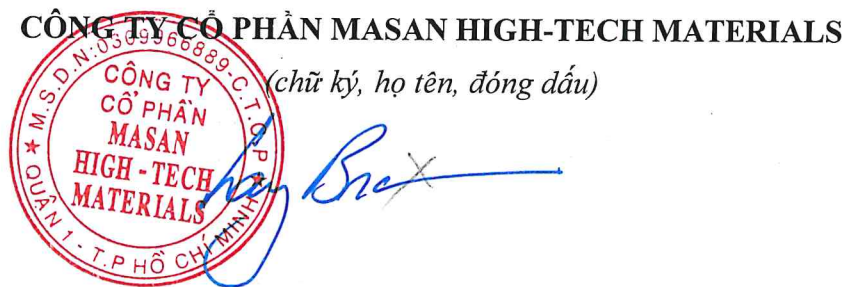 CÔNG TY CỔ PHẦN MASAN HIGH-TECH MATERIALS
(chữ ký, họ tên, đóng dấu)
M.S.D.N:0309966889-C.T.C.P
CÔNG TY
CỔ PHẦN
MASAN
HIGH - TECH
MATERIALS
QUẬN 1 - T.P HỒ CHÍ MINH